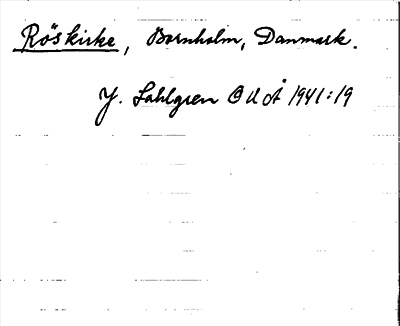 Röskirke, Bornholm, Danmark.
J. Sahlgren OUÅ 1941:19